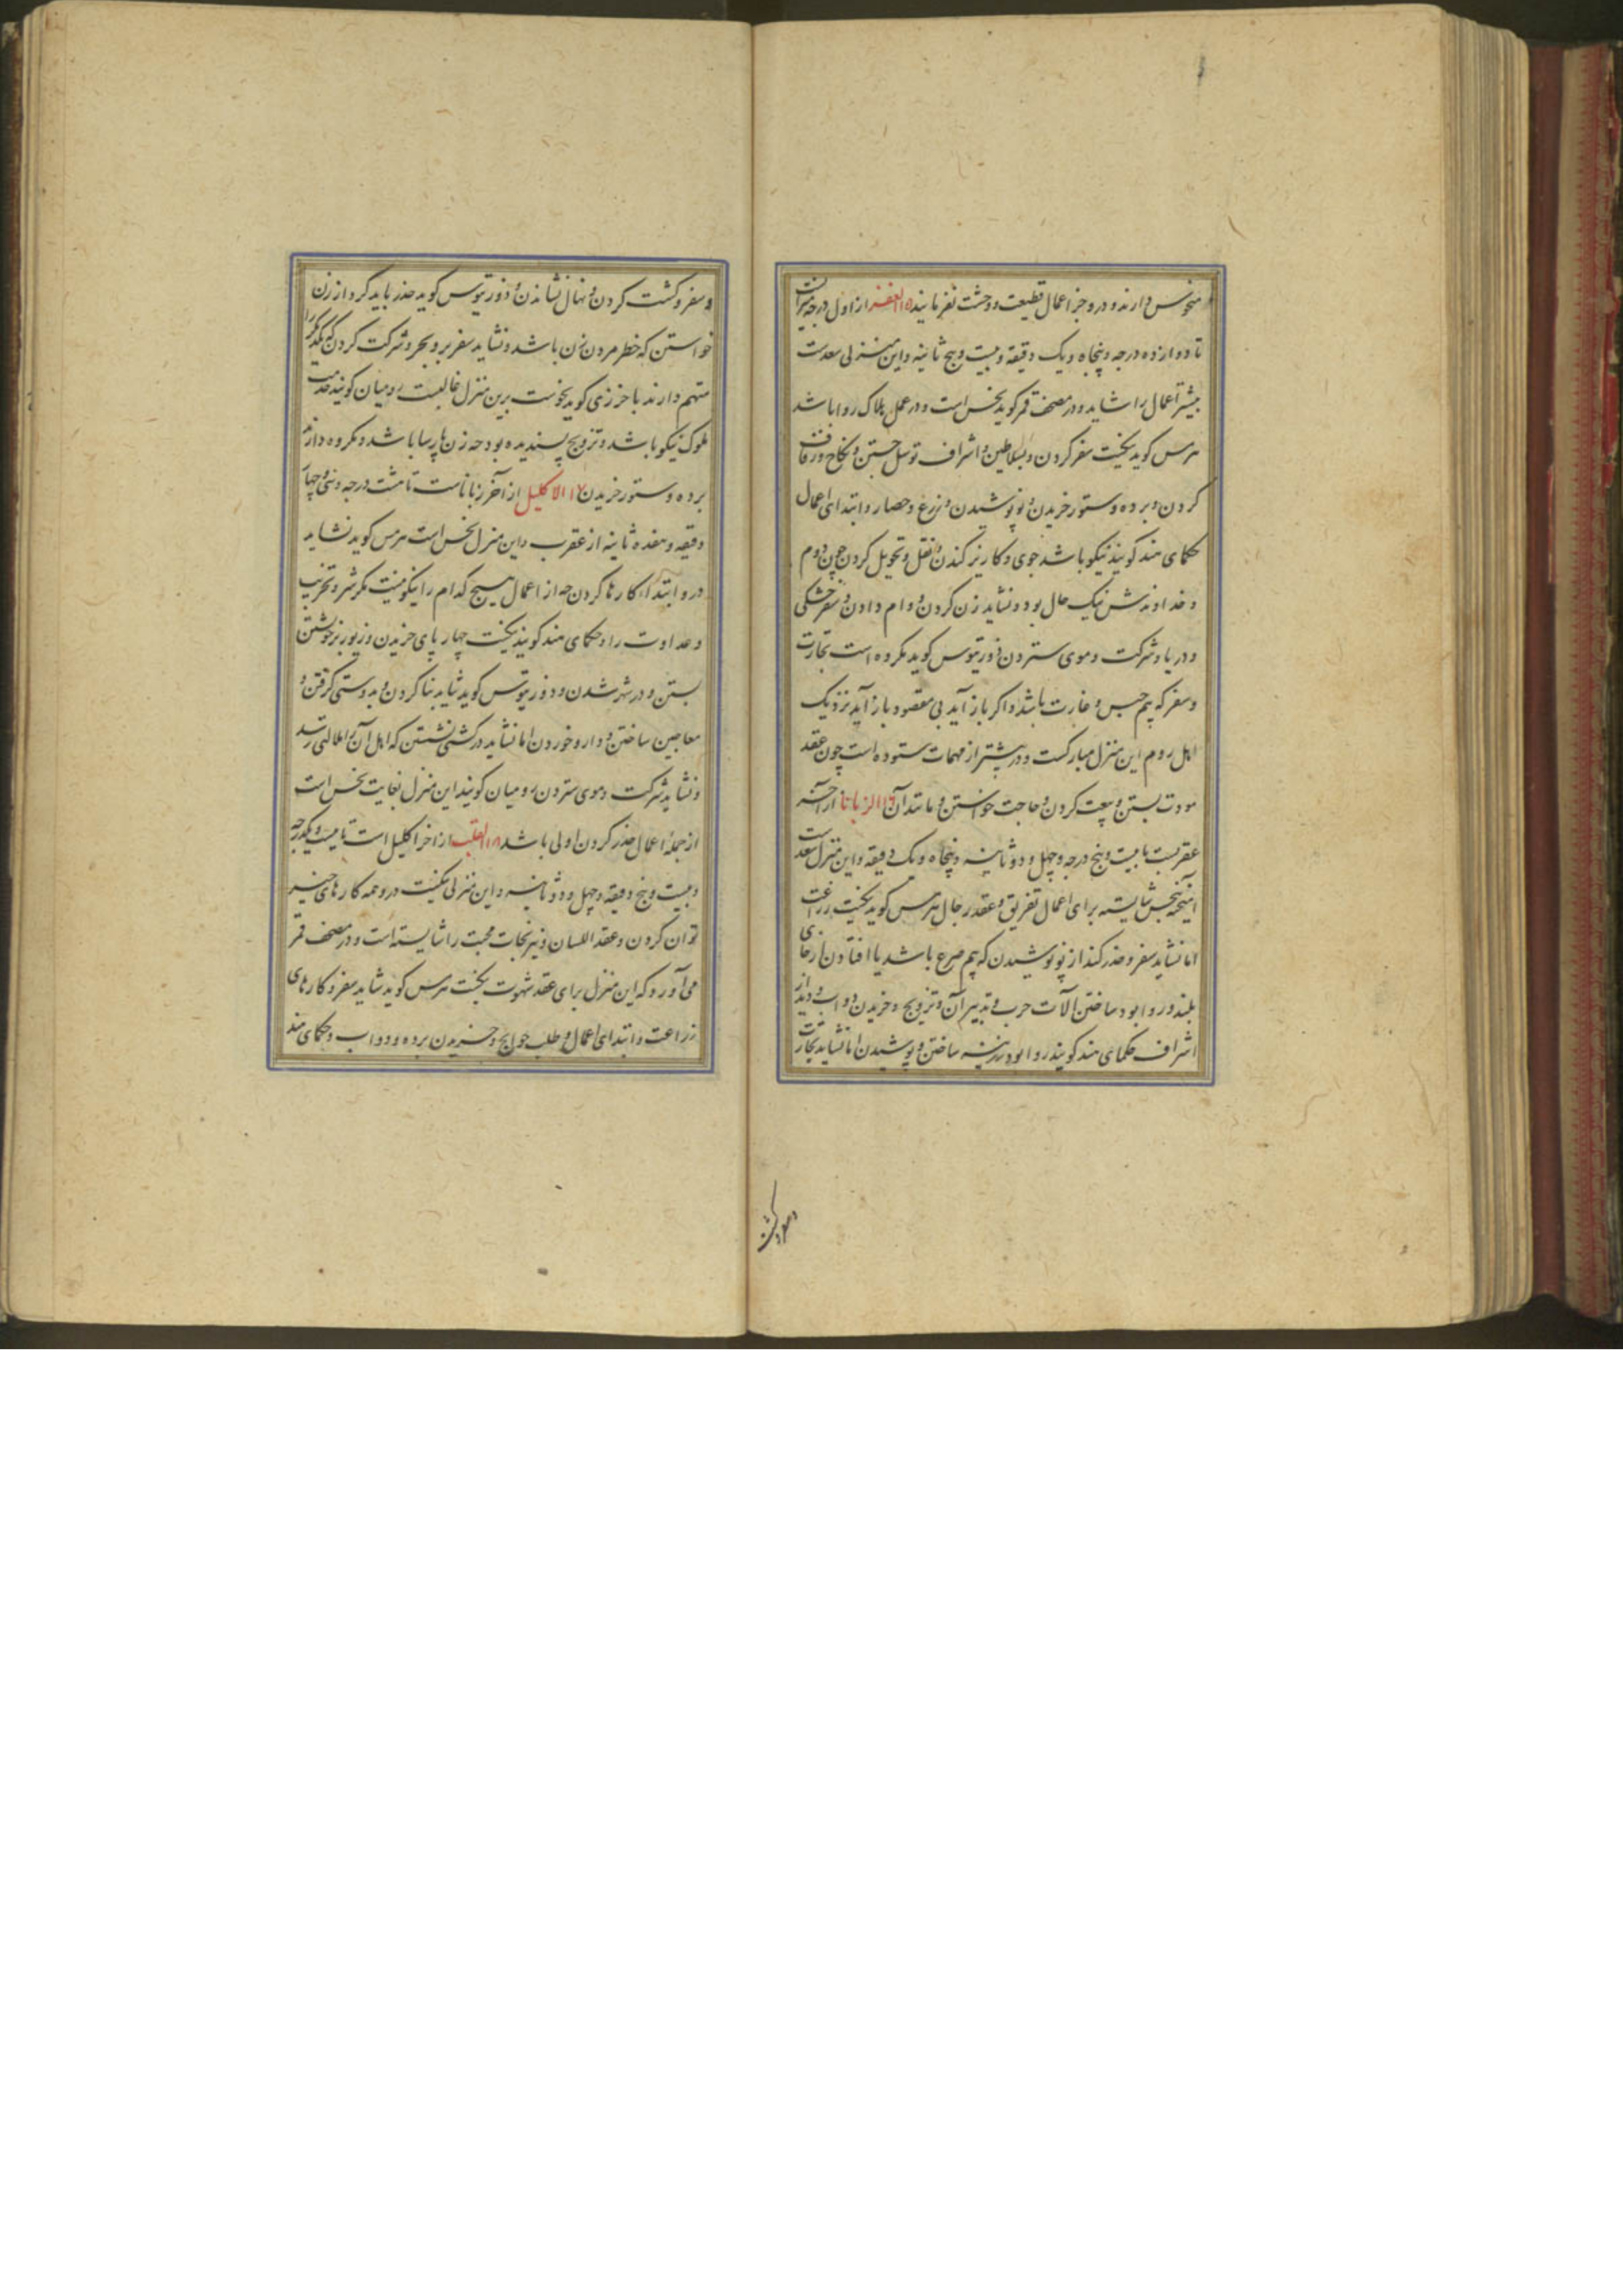 منحوس دارند و در وی جز اعمال قطیعت و وحشت نفرمایند ۱۵ الغفر از اول درجه میزانست
تا دوازده درجه و پنجاه و یک دقیقه و بیست و پنج ثانیه و این منزلی سعدست
بیشتر اعمال را شاید و در مصحف قمر کوید نحس است و در عمل هلاک روا باشد
هرمس کوید نیکست سفر کردن و بسلاطین و اشراف توسل جستن و نکاح و زفاف
کردن و برده و ستور خریدن و نو پوشیدن و زرع و حصار و ابتدای اعمال
حکمای هند کویند نیکو باشد جوی و کاریز کندن و نقل و تحویل کردن چون دوم
و خداوندش نیک حال بود و نشاید زن کردن و وام دادن و سفر خشکی
و دریا و شرکت و موی ستردن ذورتیوس کوید مکروه است تجارت
و سفر که بیم حبس و غارت باشد و اکر باز آید بی مقصود باز آید نزدیک
اهل روم این منزل مبارکست و در بیشتر از مهمات ستوده است چون عقد
مودت بستن و بیعت کردن و حاجت خواستن و مانند آن ۱۶ الزبانا از آخر
عقربست تا بیست و پنج درجه و چهل و دو ثانیه و پنجاه و یک دقیقه و این منزل سعدست
آمیخته بنحس شایسته برای اعمال تفریق و عقد رجال هرمس کوید نیکست زراعت
اما نشاید سفر و حذر کند از نو پوشیدن که بیم صرع باشد یا افتادن از جای
بلند و روا بود ساختن آلات حرب و تدبیر آن و تزویج و خریدن دواب و دیدار
اشراف حکمای هند کویند روا بود زرینه ساختن و پوشیدن اما نشاید تجارت
و سفر و کشت کردن و نهال نشاندن و ذورتیوس کوید حذر باید کرد از زن
خواستن که خطر مردن زن باشد و نشاید سفر بر و بحر و شرکت کردن که یکدیکر را
متهم دارند باخرزی کوید نحوست برین منزل غالبست رومیان کویند خدمت
ملوک نیکو باشد و تزویج پسندیده بود چه زن پارسا باشد و مکروه دارند
برده و ستور خریدن ۱۷ الاکلیل از آخر زباناست تا هشت درجه و سی و چهار
دقیقه و هفده ثانیه از عقرب و این منزل نحس است هرمس کوید نشاید
در و ابتداء کارها کردن چه از اعمال هیچ کدام را نیکو نیست مکر شر و تخریب
و عداوت را و حکمای هند کویند نیکست چهار پای خریدن و زیور بر خویشتن
بستن و در شهر شدن و ذورتیوس کوید شاید بنا کردن و بدوستی کرفتن و
معاجین ساختن و دارو خوردن اما نشاید در کشتی نشستن که اهل آن را ملالتی رسد
و نشاید شرکت و موی ستردن رومیان کویند این منزل بغایت نحس است
از جملهٔ اعمال حذر کردن اولی باشد ۱۸ القلب از اخر اکلیل است تا بیست و یکدرجه
و بیست و پنج دقیقه و چهل و دو ثانیه و این منزلی نیکست در و همه کارهای خیر
توان کردن و عقد اللسان و نیرنجات محبت را شایسته است و در مصحف قمر
می‌آورد که این منزل برای عقد شهوت نیکست هرمس کوید شاید سفر و کارهای
زراعت و ابتدای اعمال و طلب حوایج و خریدن برده و دواب و حکمای هند
و سفر و کشت